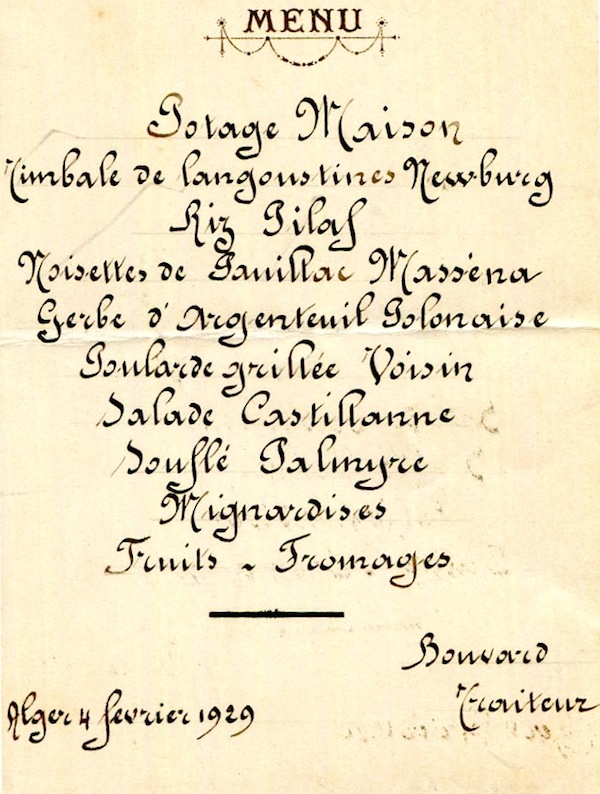 MENU
Potage Maison
Timbale de langoustines Newburg
Riz Pilaf
Noisettes de Pauillac Masséna
Gerbe d'Argenteuil Polonaise
Poularde grillée Voisin
Salade Castillanne
Souflé Palmyre
Mignardises
Fruits - Fromages
Bouvard
Traiteur
Alger 4 fevrier 1929